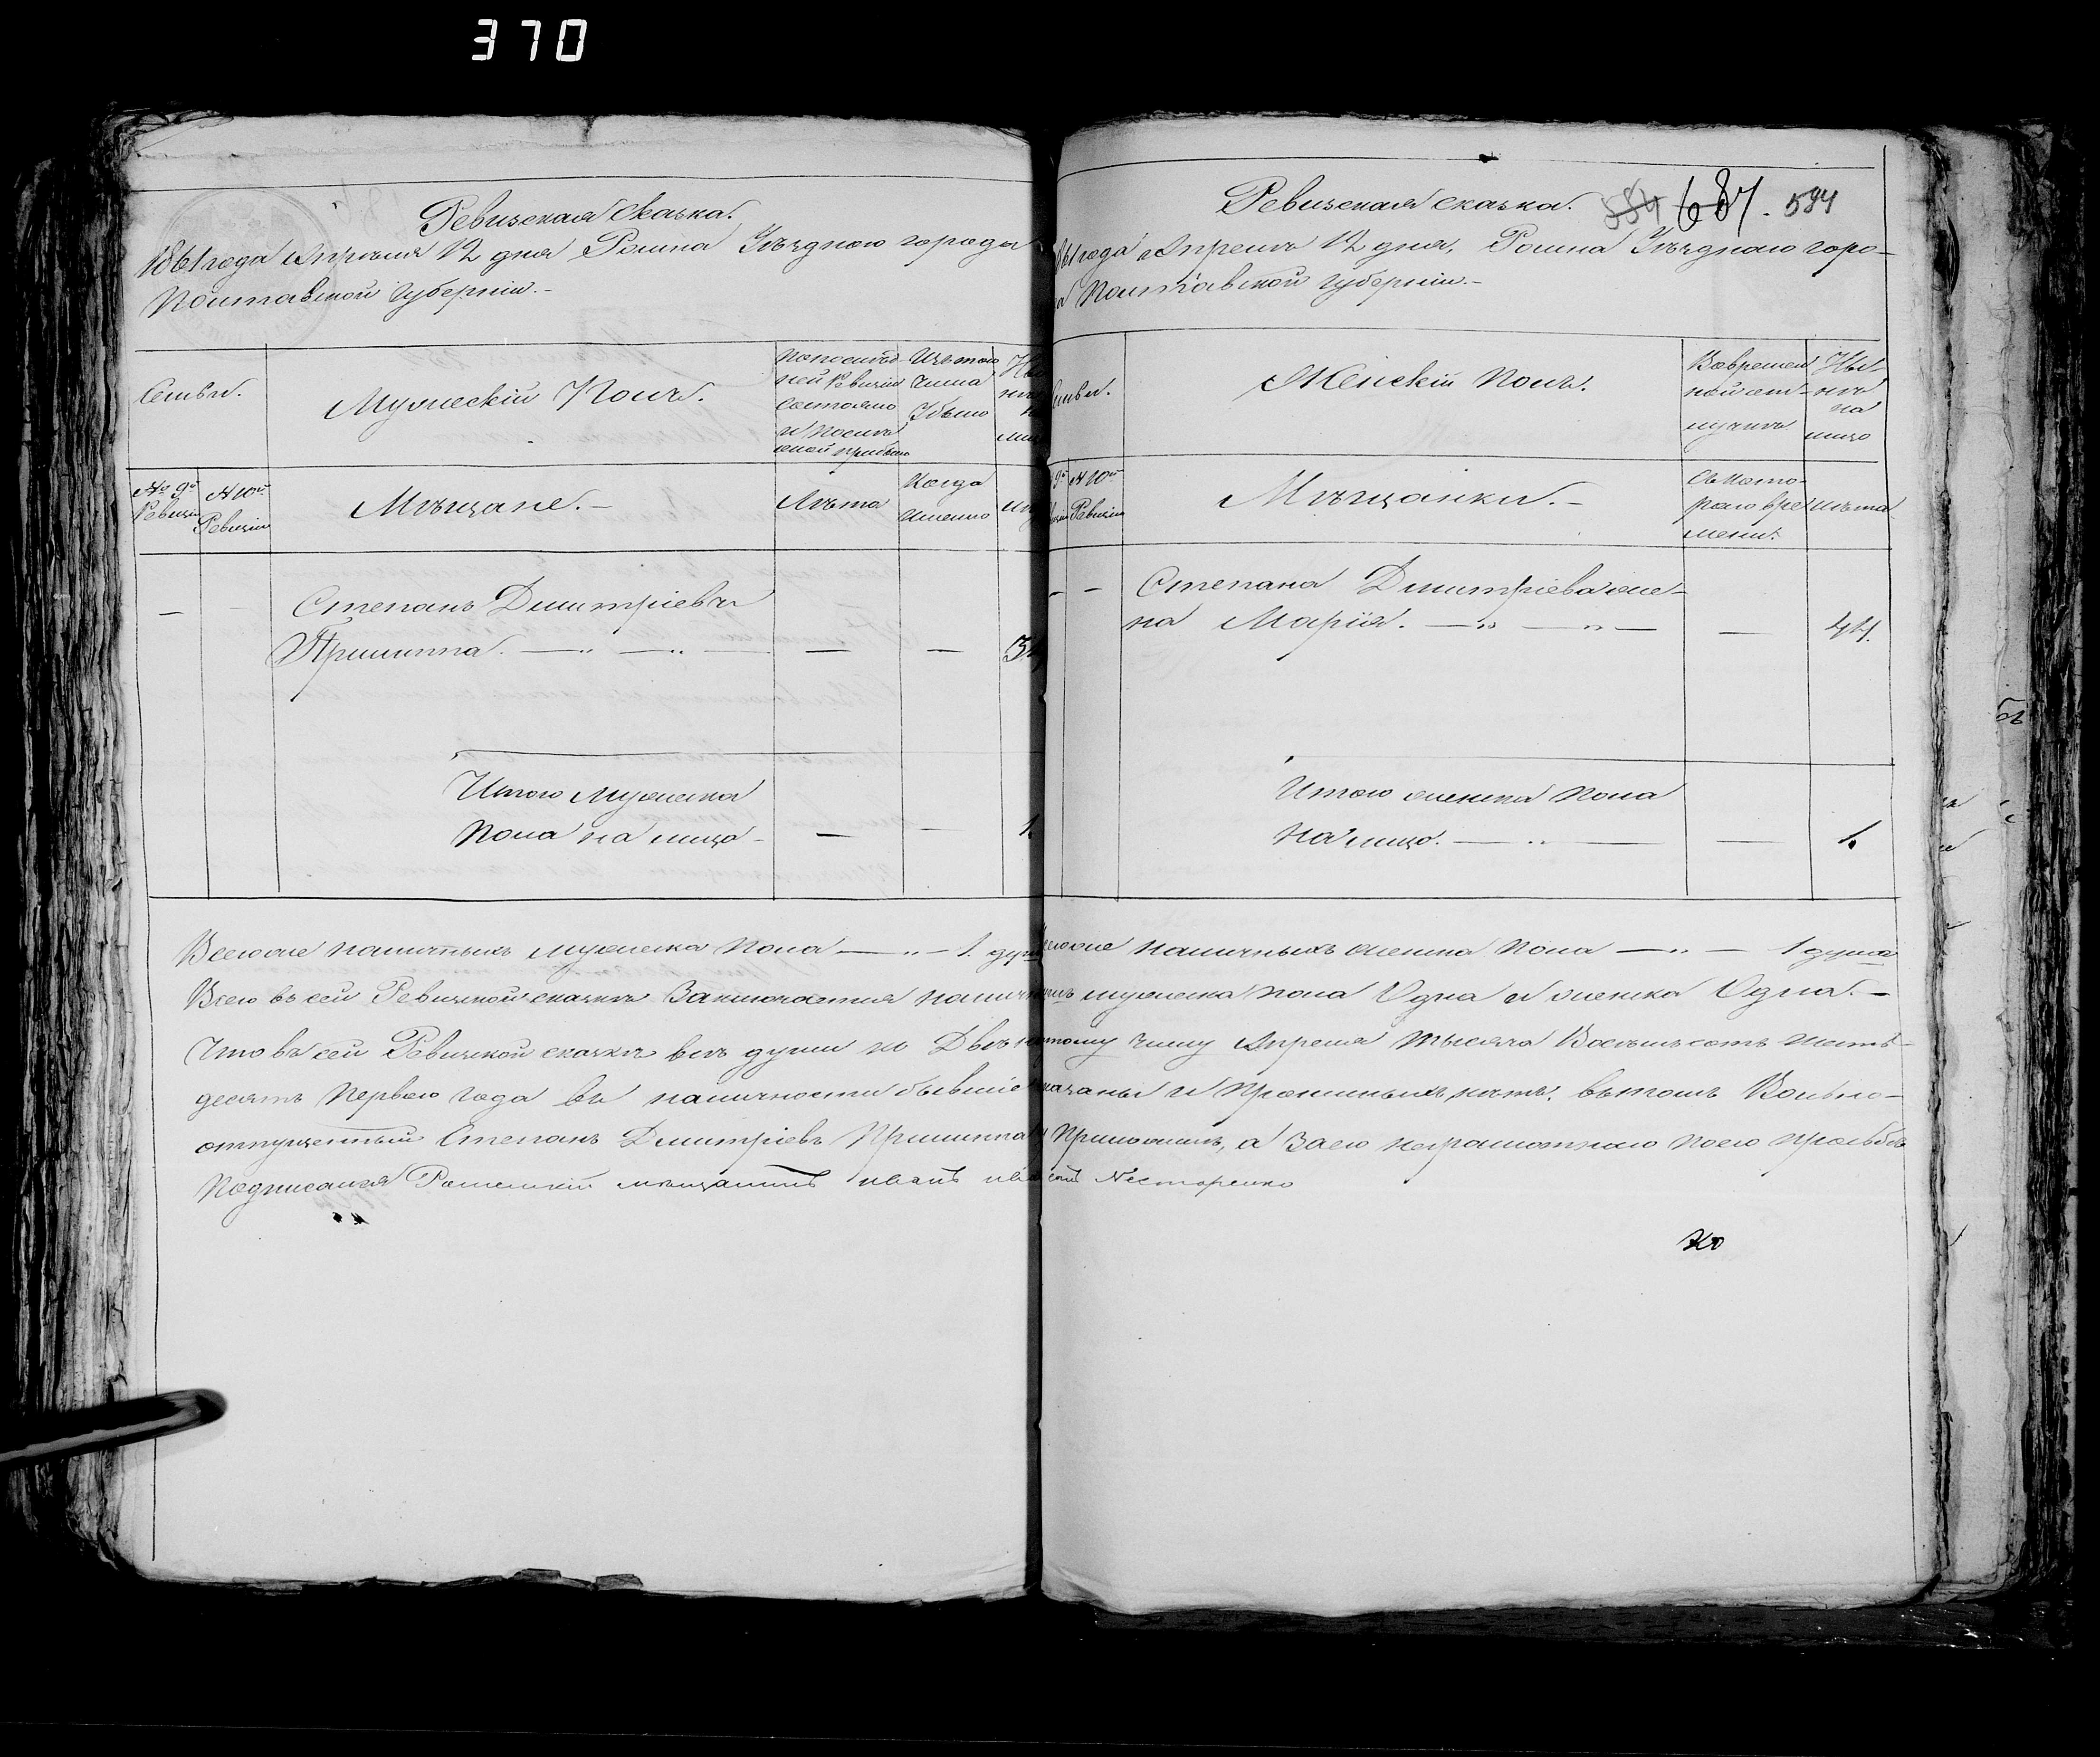 370
Ревизская Сказка.
1861 года Апреля 12 дня Ромна Уѣзднаго города
Полтавской губерніи.-
Семьи.
Мужескій Полъ.
По послѣд-
ней Ревизіи
состояло
и послѣ
оной прибыло
Изъ того
числа
Убыло
№ 9й
Ревизіи
№ 10й
Ревизіи
Мѣщане.-
Лѣта
Когда
именно
— Степанъ Дмитріевъ
Пришиппа. — „ — „ — — —
Итого Мужеска
Пола на лицо - — — 1.
Всегоже наличныхъ мужеска пола — „ — 1. душа
Ревизская сказка. 584 687. 594
1861 года Апреля 12 дня, Ромна Уѣзднаго горо-
да Полтавской губерніи.-
Семьи.
Женскій Полъ.
Во времен-
ной от-
лучкѣ
Ны-
нѣ
на
лицо
9й
Ревизіи
№ 10й
Ревизіи
Мѣщанки.-
Съ кото-
раго вре-
мени.
лѣта
— — Степана Дмитріева же-
на Марія. — „ — „ — — 44.
Итого женска Пола
На лицо. — „ — — 1.
Всегоже наличныхъ женска пола — „ — 1 душа
Всего въ сей Ревизской сказкѣ Заключается наличныхъ мужеска пола Одна и женска Одна.-
Что въ сей Ревизской сказкѣ всѣ души къ Двѣнадцатому числу Апреля Тысяча Восемьсотъ шесть-
десятъ Перваго года въ наличности бывшіе показаны и прописныхъ нѣтъ. въ томъ Вольно-
отпущенный Степанъ Дмитріевъ Пришиппа, а За его неграмотнаго по его прозьбѣ
Подписался Роменскій мѣщанинъ Иванъ Нестеренко